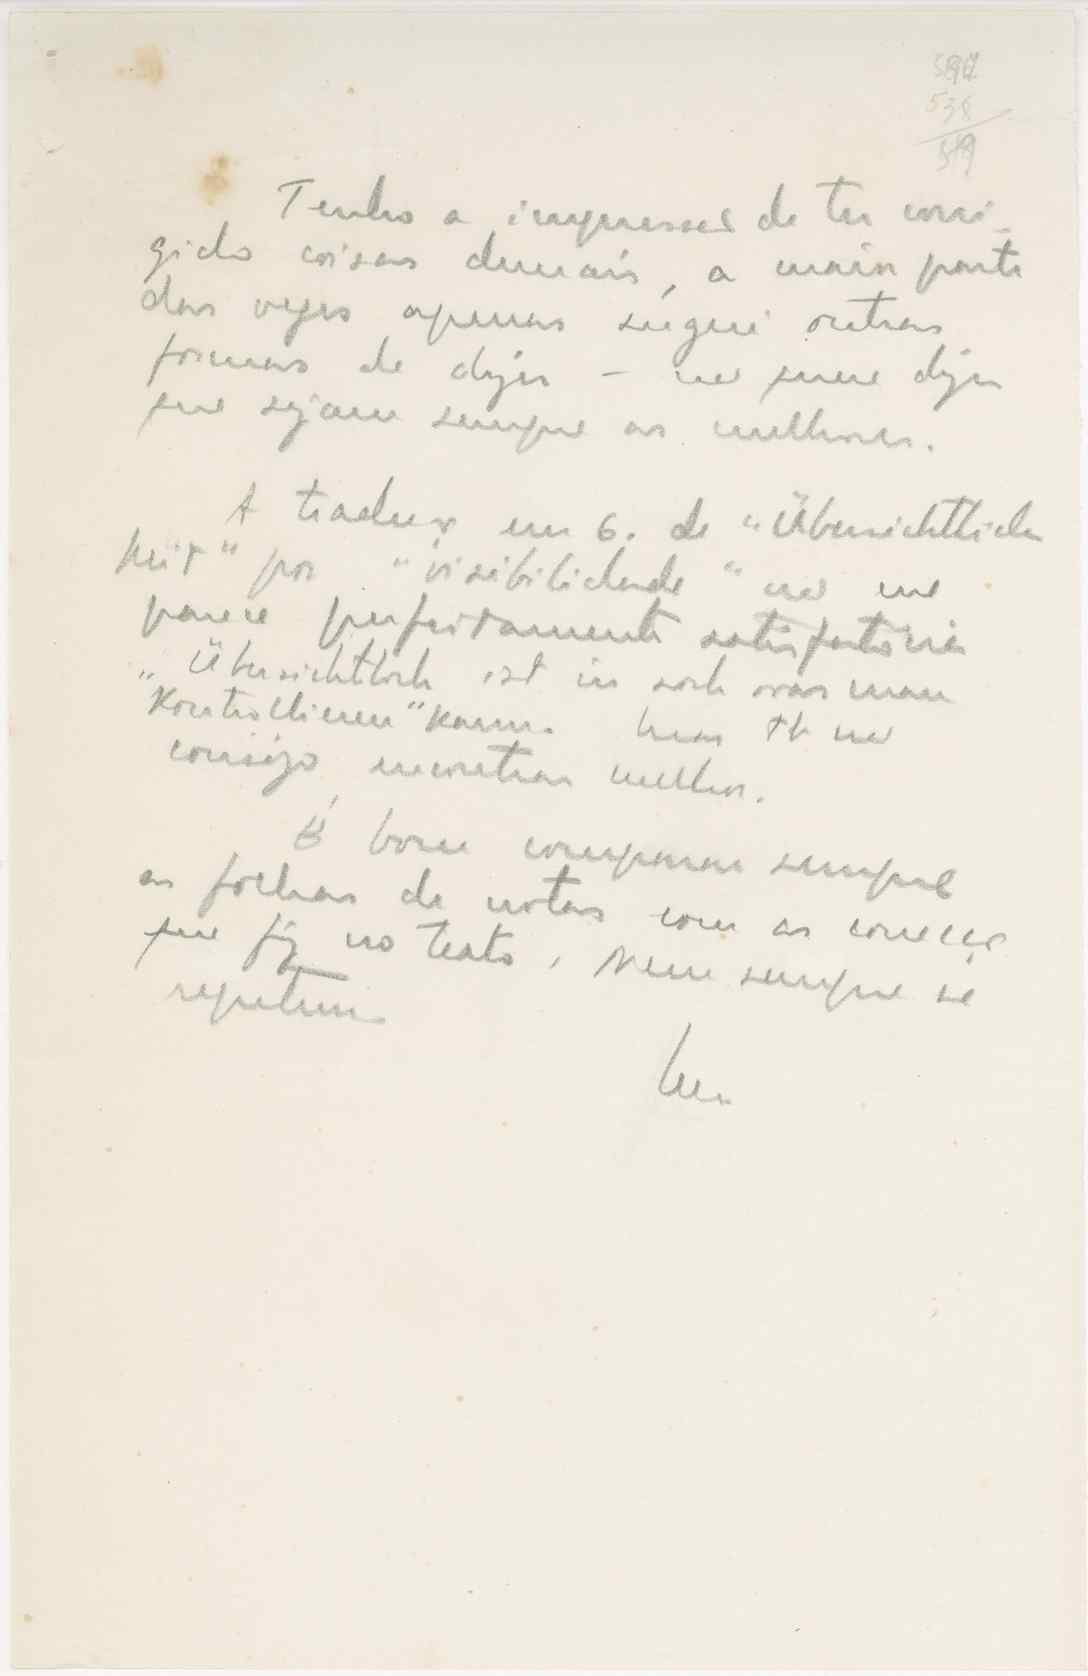 538
Tenho a impressão de ter corri-
gido coisas demais, a maior parte
das vezes apenas sugeri outras
formas de dizer – não quero dizer
que sejam sempre as melhores.
A traduç em 6. de "Übersichtlich
keit" por "visibilidade" não me
parece perfeitamente satisfatória
"Übersichtlich ist in sich was man
Kontrollieren" kann. mas não
consigo encontrar melhor.
É bom comparar sempre
as folhas de notas com as correcç
que fiz no texto, Nem sempre se
repetem.